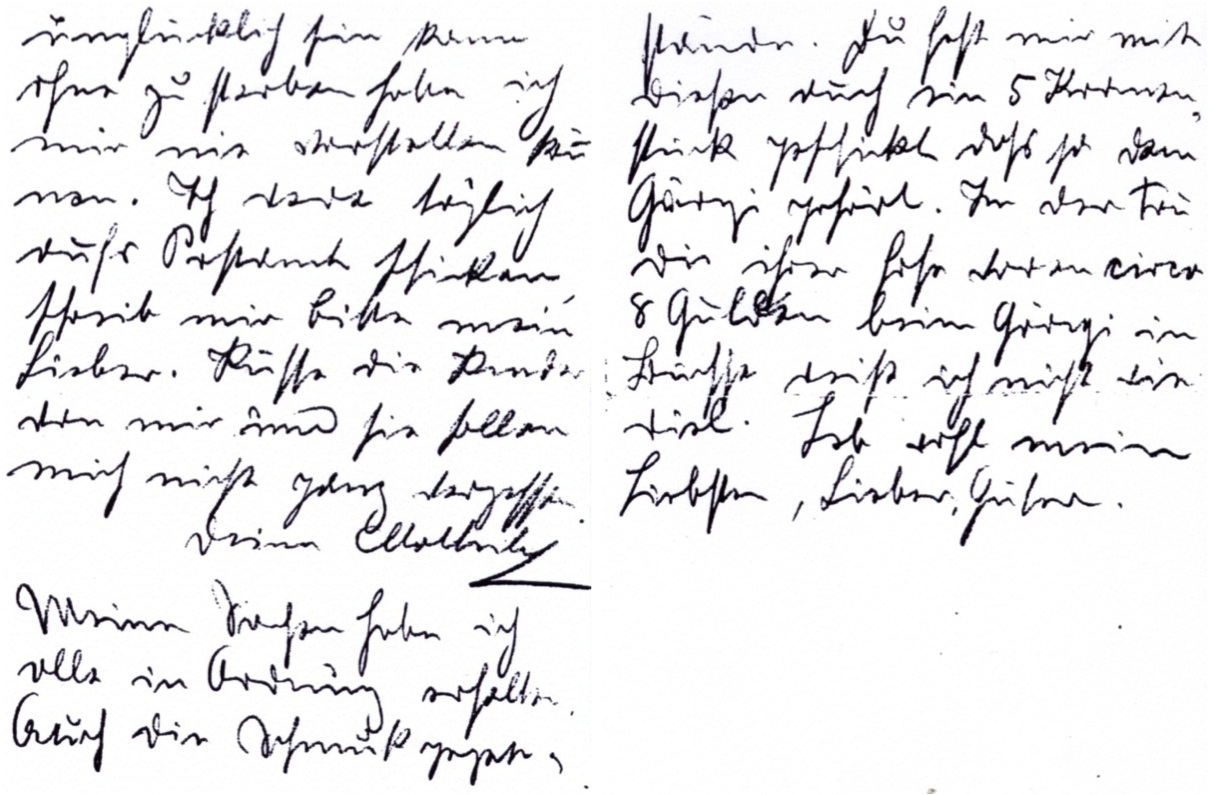 unglücklich sein kann
ohne zu sterben habe ich
mir nie vorstellen kön
nen. Ich werde täglich
aufs Postamt schicken,
schreib mir bitte mein
Lieber. Küsse die Kinder
von mir und sie sollen
mich nicht ganz vergessen.
Deine Mathild
Meine Sachen habe ich
alle in Ordnung erhalten.
Auch die Schmuckgegen-
stände. Du hast mir mit
diesen auch ein 5 Kronen
stück geschickt daß ja dem
Györgyi gehört. In der
die ihrer hohe waren circa
8 Gulden beim Györgyi in
Büchse weiß ich nicht wie
viel. Leb wohl mein
Liebster, Lieber, Guter.